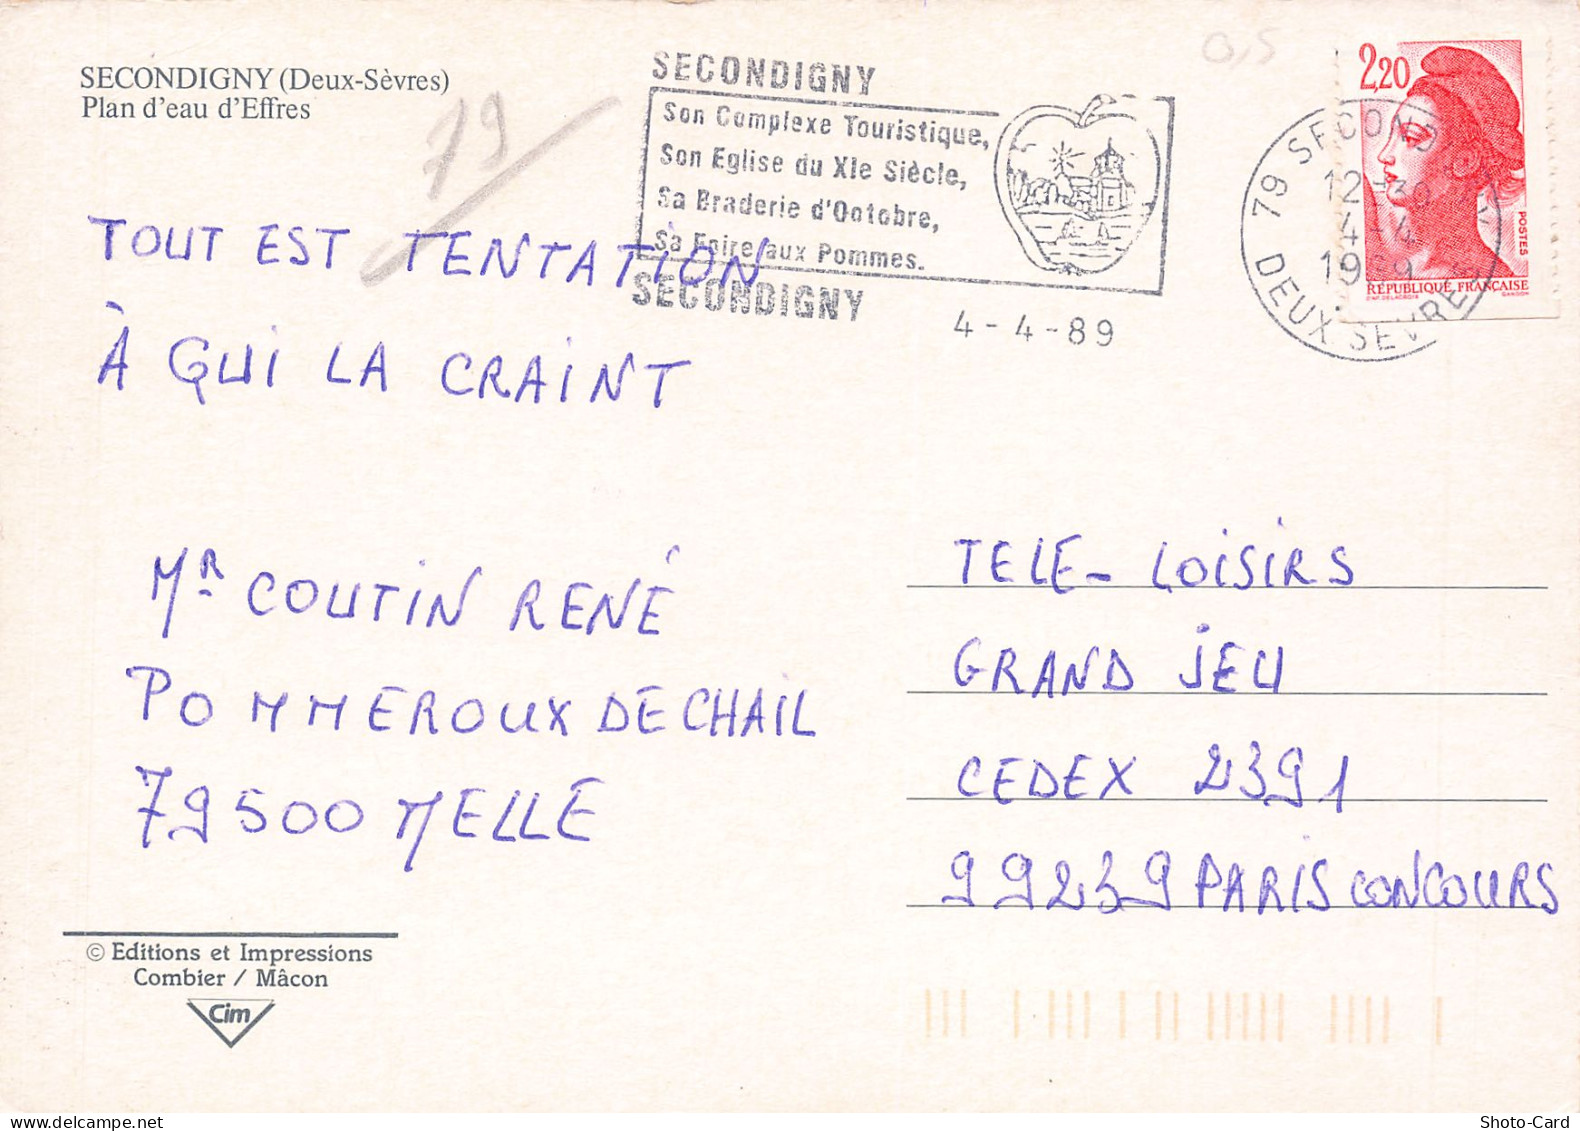 SECONDIGNY (Deux-Sèvres)
Plan d'eau d'Effres
79
0,5
SECONDIGNY
Son Complexe Touristique,
Son Eglise du XIe Siècle,
Sa Braderie d'Octobre,
Sa Foire aux Pommes.
SECONDIGNY
4-4-89
79 SECONDIGNY
12-30
4-4
1989
DEUX SEVRES
2,20
POSTES
RÉPUBLIQUE FRANÇAISE
D'AP. DELACROIX
GANDON
TOUT EST TENTATION
À QUI LA CRAINT
MR COUTIN RENÉ
POMMEROUX DE CHAIL
79500 MELLE
TELE-LOISIRS
GRAND JEU
CEDEX 2391
99239 PARIS CONCOURS
© Editions et Impressions
Combier / Mâcon
Cim
Shoto-Card